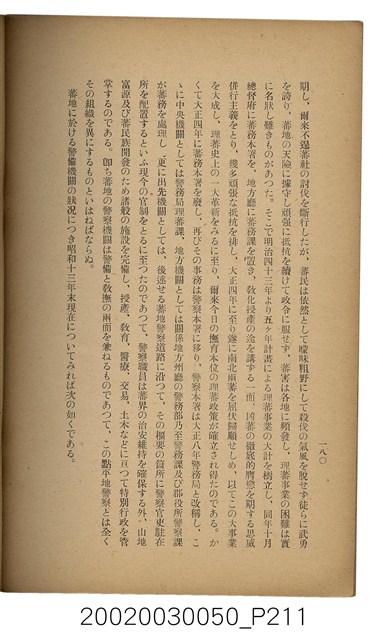 一八〇
期し、爾來不逞蕃社の討伐を斷行したが、蕃民は依然として曚昧粗野にして殺伐の氣風を脫せず徒らに武勇
を誇り、蕃地の天險に據守し頑强に抵抗を續けて政令に服せず、蕃害は各地に頻發し、理蕃事業の困難は實
に名狀し難きものがあつた。そこで明治四十三年より五ヶ年計畫による理蕃事業の大計を樹立し、同年十月
總督府に蕃務本署を、地方廳に蕃務課を置き、敎化授產の途を講ずる一面、凶蕃の徹底的膺懲を期する恩威
併行主義をとり、幾多頑强な抵抗を排し、大正四年に至り遂に南北兩蕃を屈伏歸順せしめ、以てこの大事業
を大成し、理蕃史上の一大革新をみるに至り、爾來今日の撫育本位の理蕃政策が確立され得たのである。か
くて大正四年に蕃務本署を廢し、再びその事務は警察本署に移り、警察本署は大正八年警務局と改稱し、こ
ゝに中央機關としては警務局理蕃課、地方機關としては關係地方州廳の警務部乃至警務課及び郡役所警察課
が蕃務を處理し、更に出先機關としては、後述せる蕃地警察道路に沿つて、その樞要の箇所に警察官吏駐在
所を配置するといふ現今の官制をとるに至つたのであつて、警察職員は蕃界の治安維持を確保する外、山地
富源及び蕃民族開發のため諸般の施設を完備し、授產、敎育、醫療、交易、土木などに亘つて特別行政を管
掌するのである。卽ち蕃地の警察機關は警備と敎撫の兩面を兼ねるものであつて、この點平地警察とは全く
その組織を異にするものといはねばならぬ。
蕃地に於ける警備機關の狀況につき昭和十三年末現在についてみれば次の如くである。
20020030050_P211